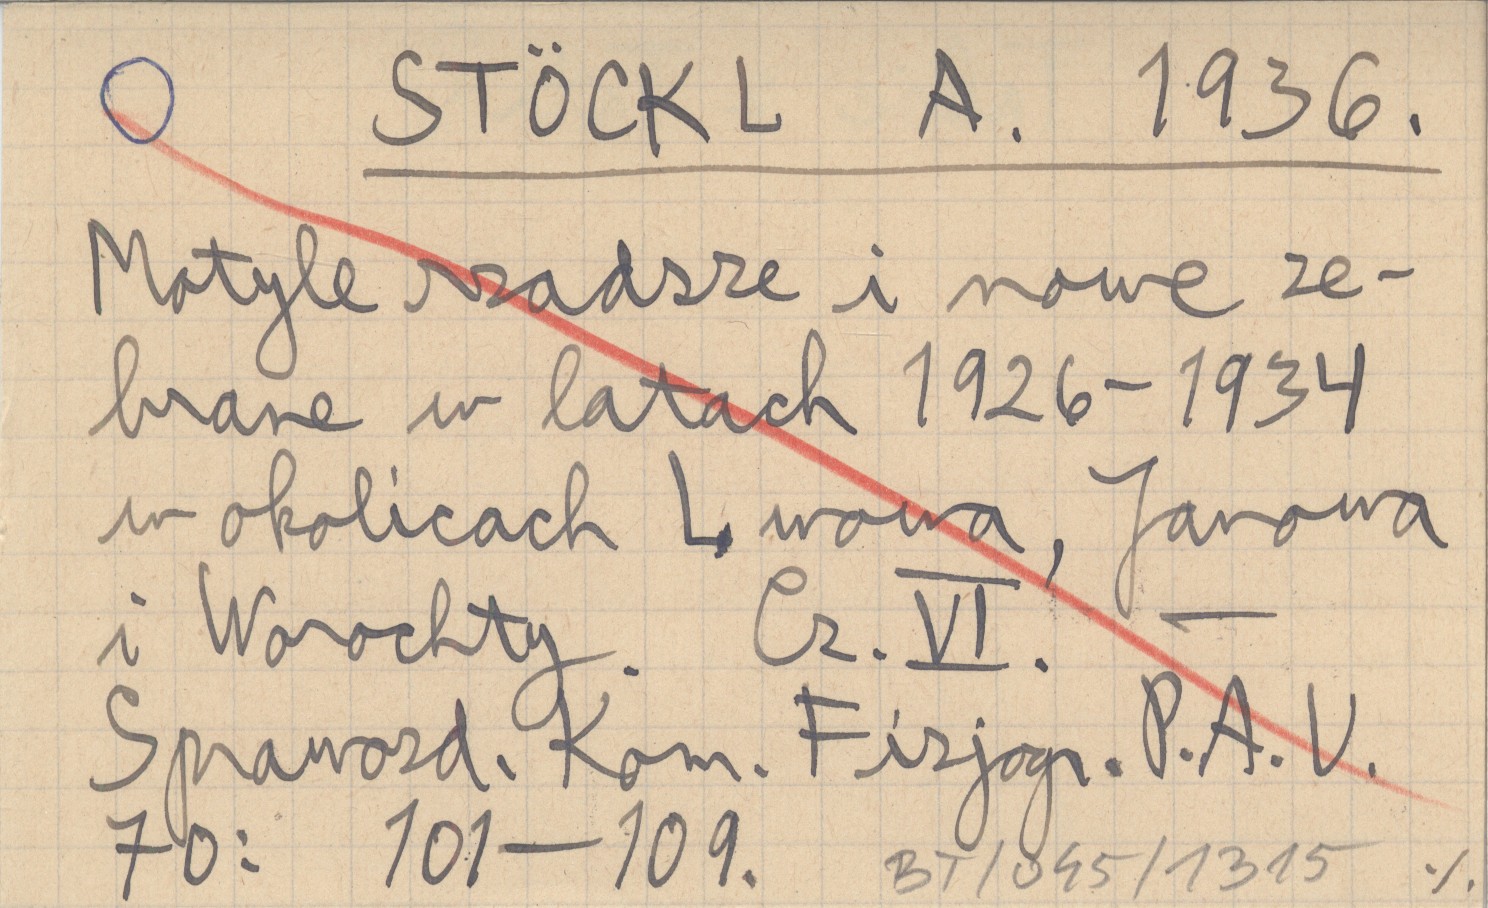 STÖCKL A. 1936.
Motyle rzadsze i nowe ze-
brane w latach 1926-1934
w okolicach Lwowa, Janowa
i Worochty. Cz. VI. —
Sprawozd. Kom. Fizjogr. P.A.U.
70: 101-109.
BT/045/1315 ./.